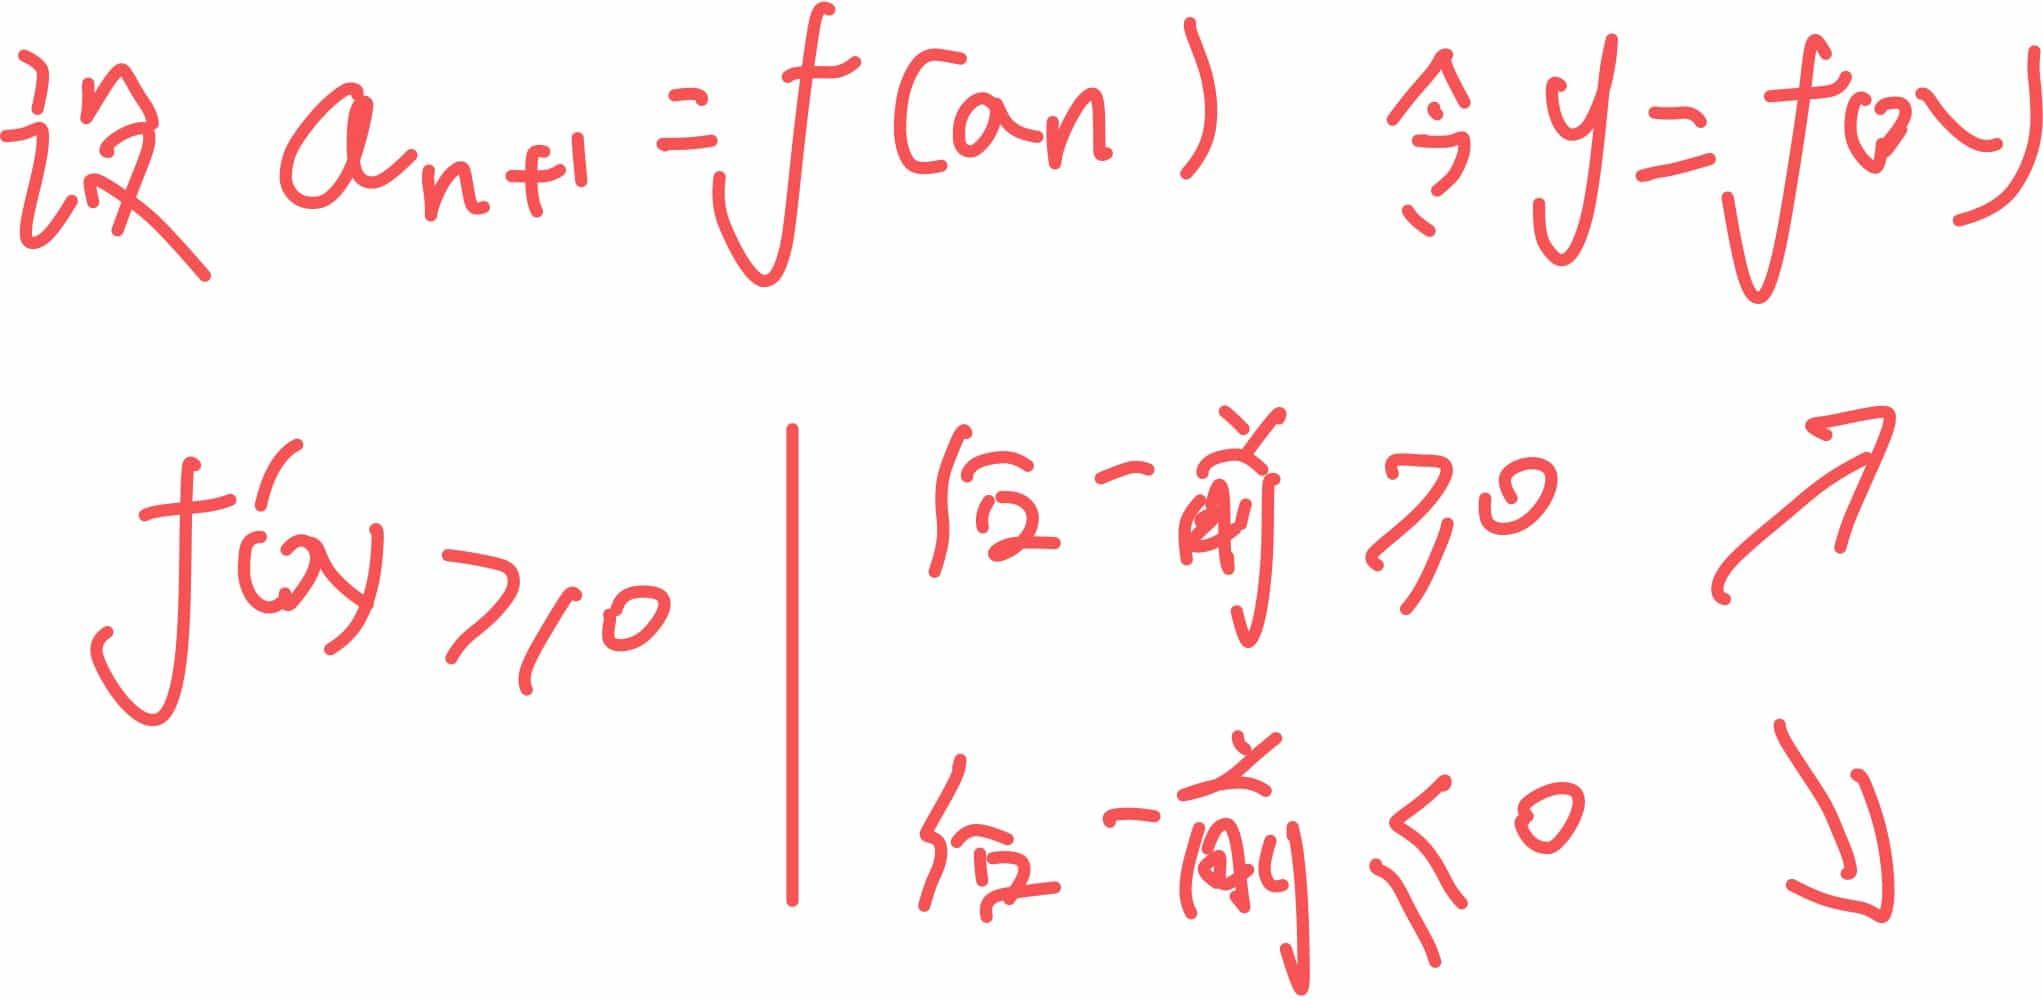 设 aₙ₊₁ = f(an) 令 y = f(x)
f'(x) ≥ 0 | 后 - 前 ≥ 0 ↗
后 - 前 ≤ 0 ↘